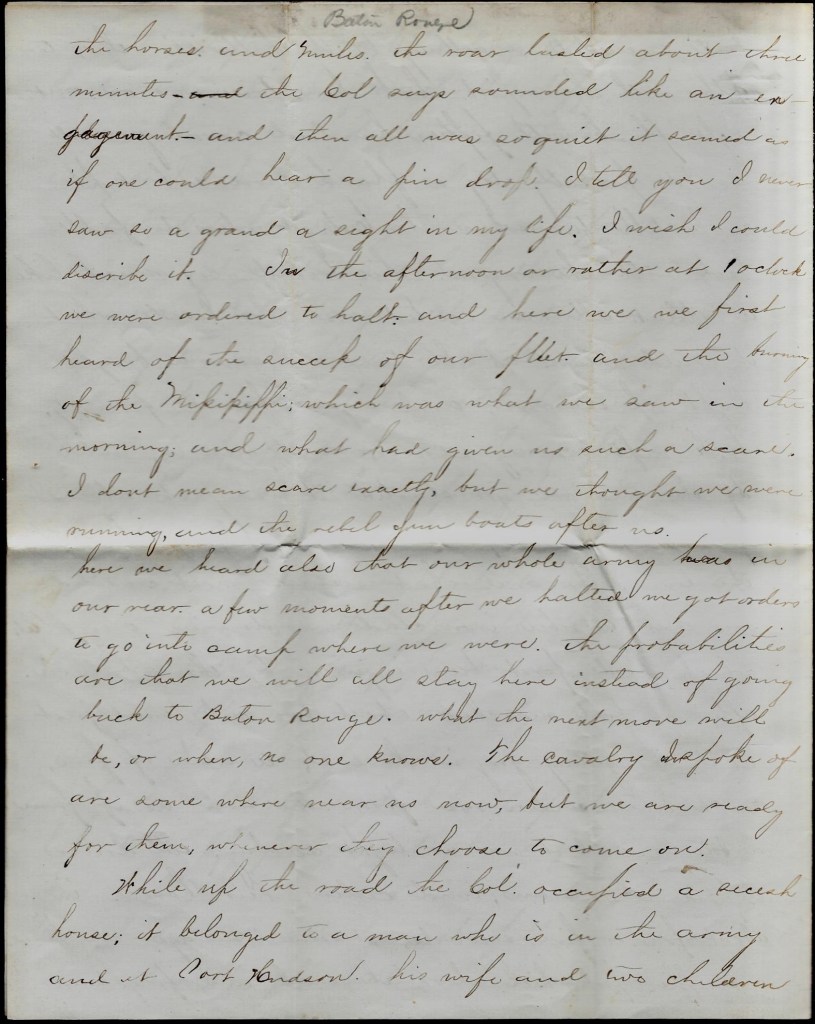 Baton Rouge
the horses. and Mules. the roar lasted about three
minutes - and the Col says sounded like an en-
gagement. - and then all was so quiet it seamed as
if one could hear a pin drop. I tell you I never
saw so a grand a sight in my life. I wish I could
discribe it. In the afternoon or rather at 1 oclock
we were ordered to halt. and here we we first
heard of the success of our fleet. and the burning
of the Missisippi; which was what we saw in the
morning; and what had given us such a scare.
I dont mean scare exactly, but we thought we were
running, and the rebel gun boats after us.
here we heard also that our whole army was in
our rear. a few moments after we halted we got orders
to go into camp where we were. the probabilities
are that we will all stay here instead of going
back to Baton Rouge. what the next move will
be, or when, no one knows. The cavalry I spoke of
are some where near us now, but we are ready
for them, whenever they choose to come on.
While up the road the Col. occupied a secesh
house; it belonged to a man who is in the army
and at Port Hudson. his wife and two children